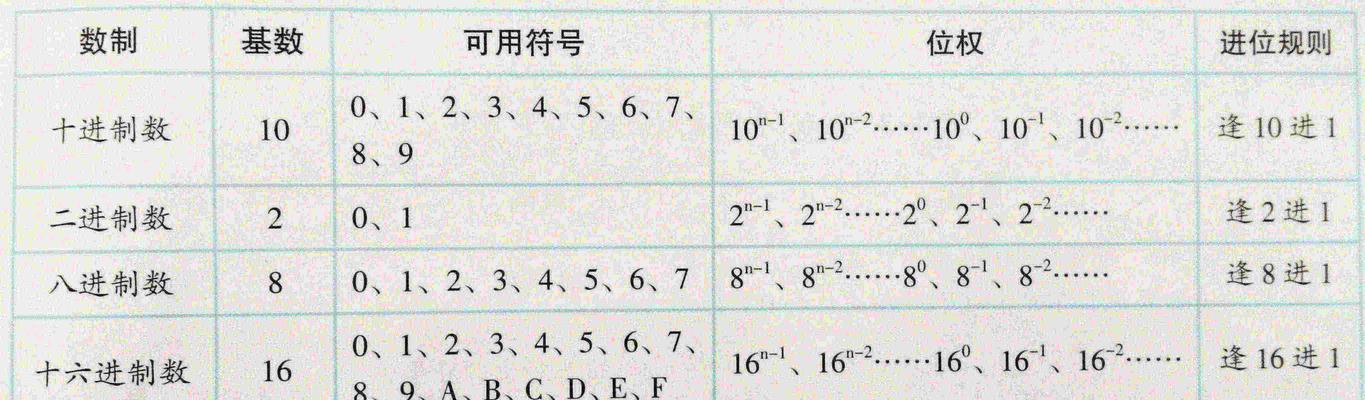 数制 基数 可用符号 位权 进位规则
十进制数 10 0、1、2、3、4、5、6、7、 10ⁿ⁻¹、10ⁿ⁻²……10⁰、10⁻¹、10⁻²…… 逢10进1
8、9
二进制数 2 0、1 2ⁿ⁻¹、2ⁿ⁻²……2⁰、2⁻¹、2⁻²…… 逢2进1
八进制数 8 0、1、2、3、4、5、6、7 8ⁿ⁻¹、8ⁿ⁻²……8⁰、8⁻¹、8⁻²…… 逢8进1
十六进制数 16 0、1、2、3、4、5、6、7、 16ⁿ⁻¹、16ⁿ⁻²……16⁰、16⁻¹、16⁻²…… 逢16进1
8、9、A、B、C、D、E、F